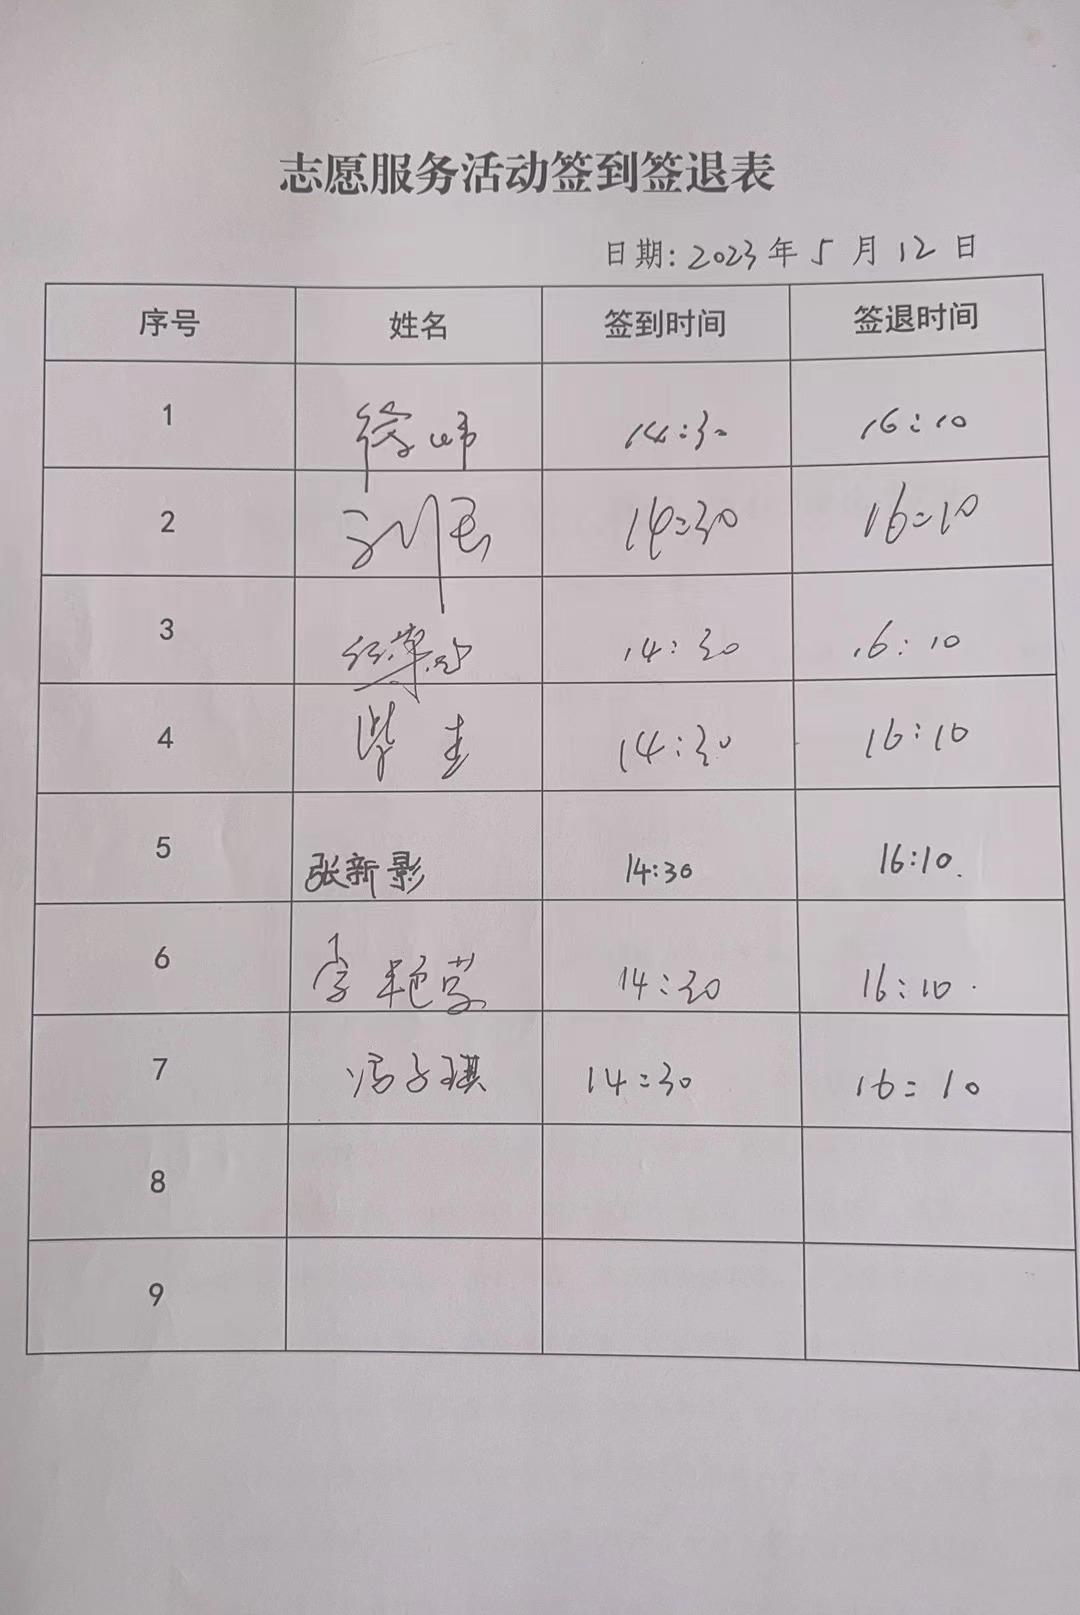 志愿服务活动签到签退表
日期: 2023年5月12日
序号 姓名 签到时间 签退时间
1 徐 14:30 16:10
2 刘 14:30 16:10
3 14:30 16:10
4 14:30 16:10
5 张新影 14:30 16:10.
6 艳 14:30 16:10.
7 冯子琪 14:30 16:10
8
9